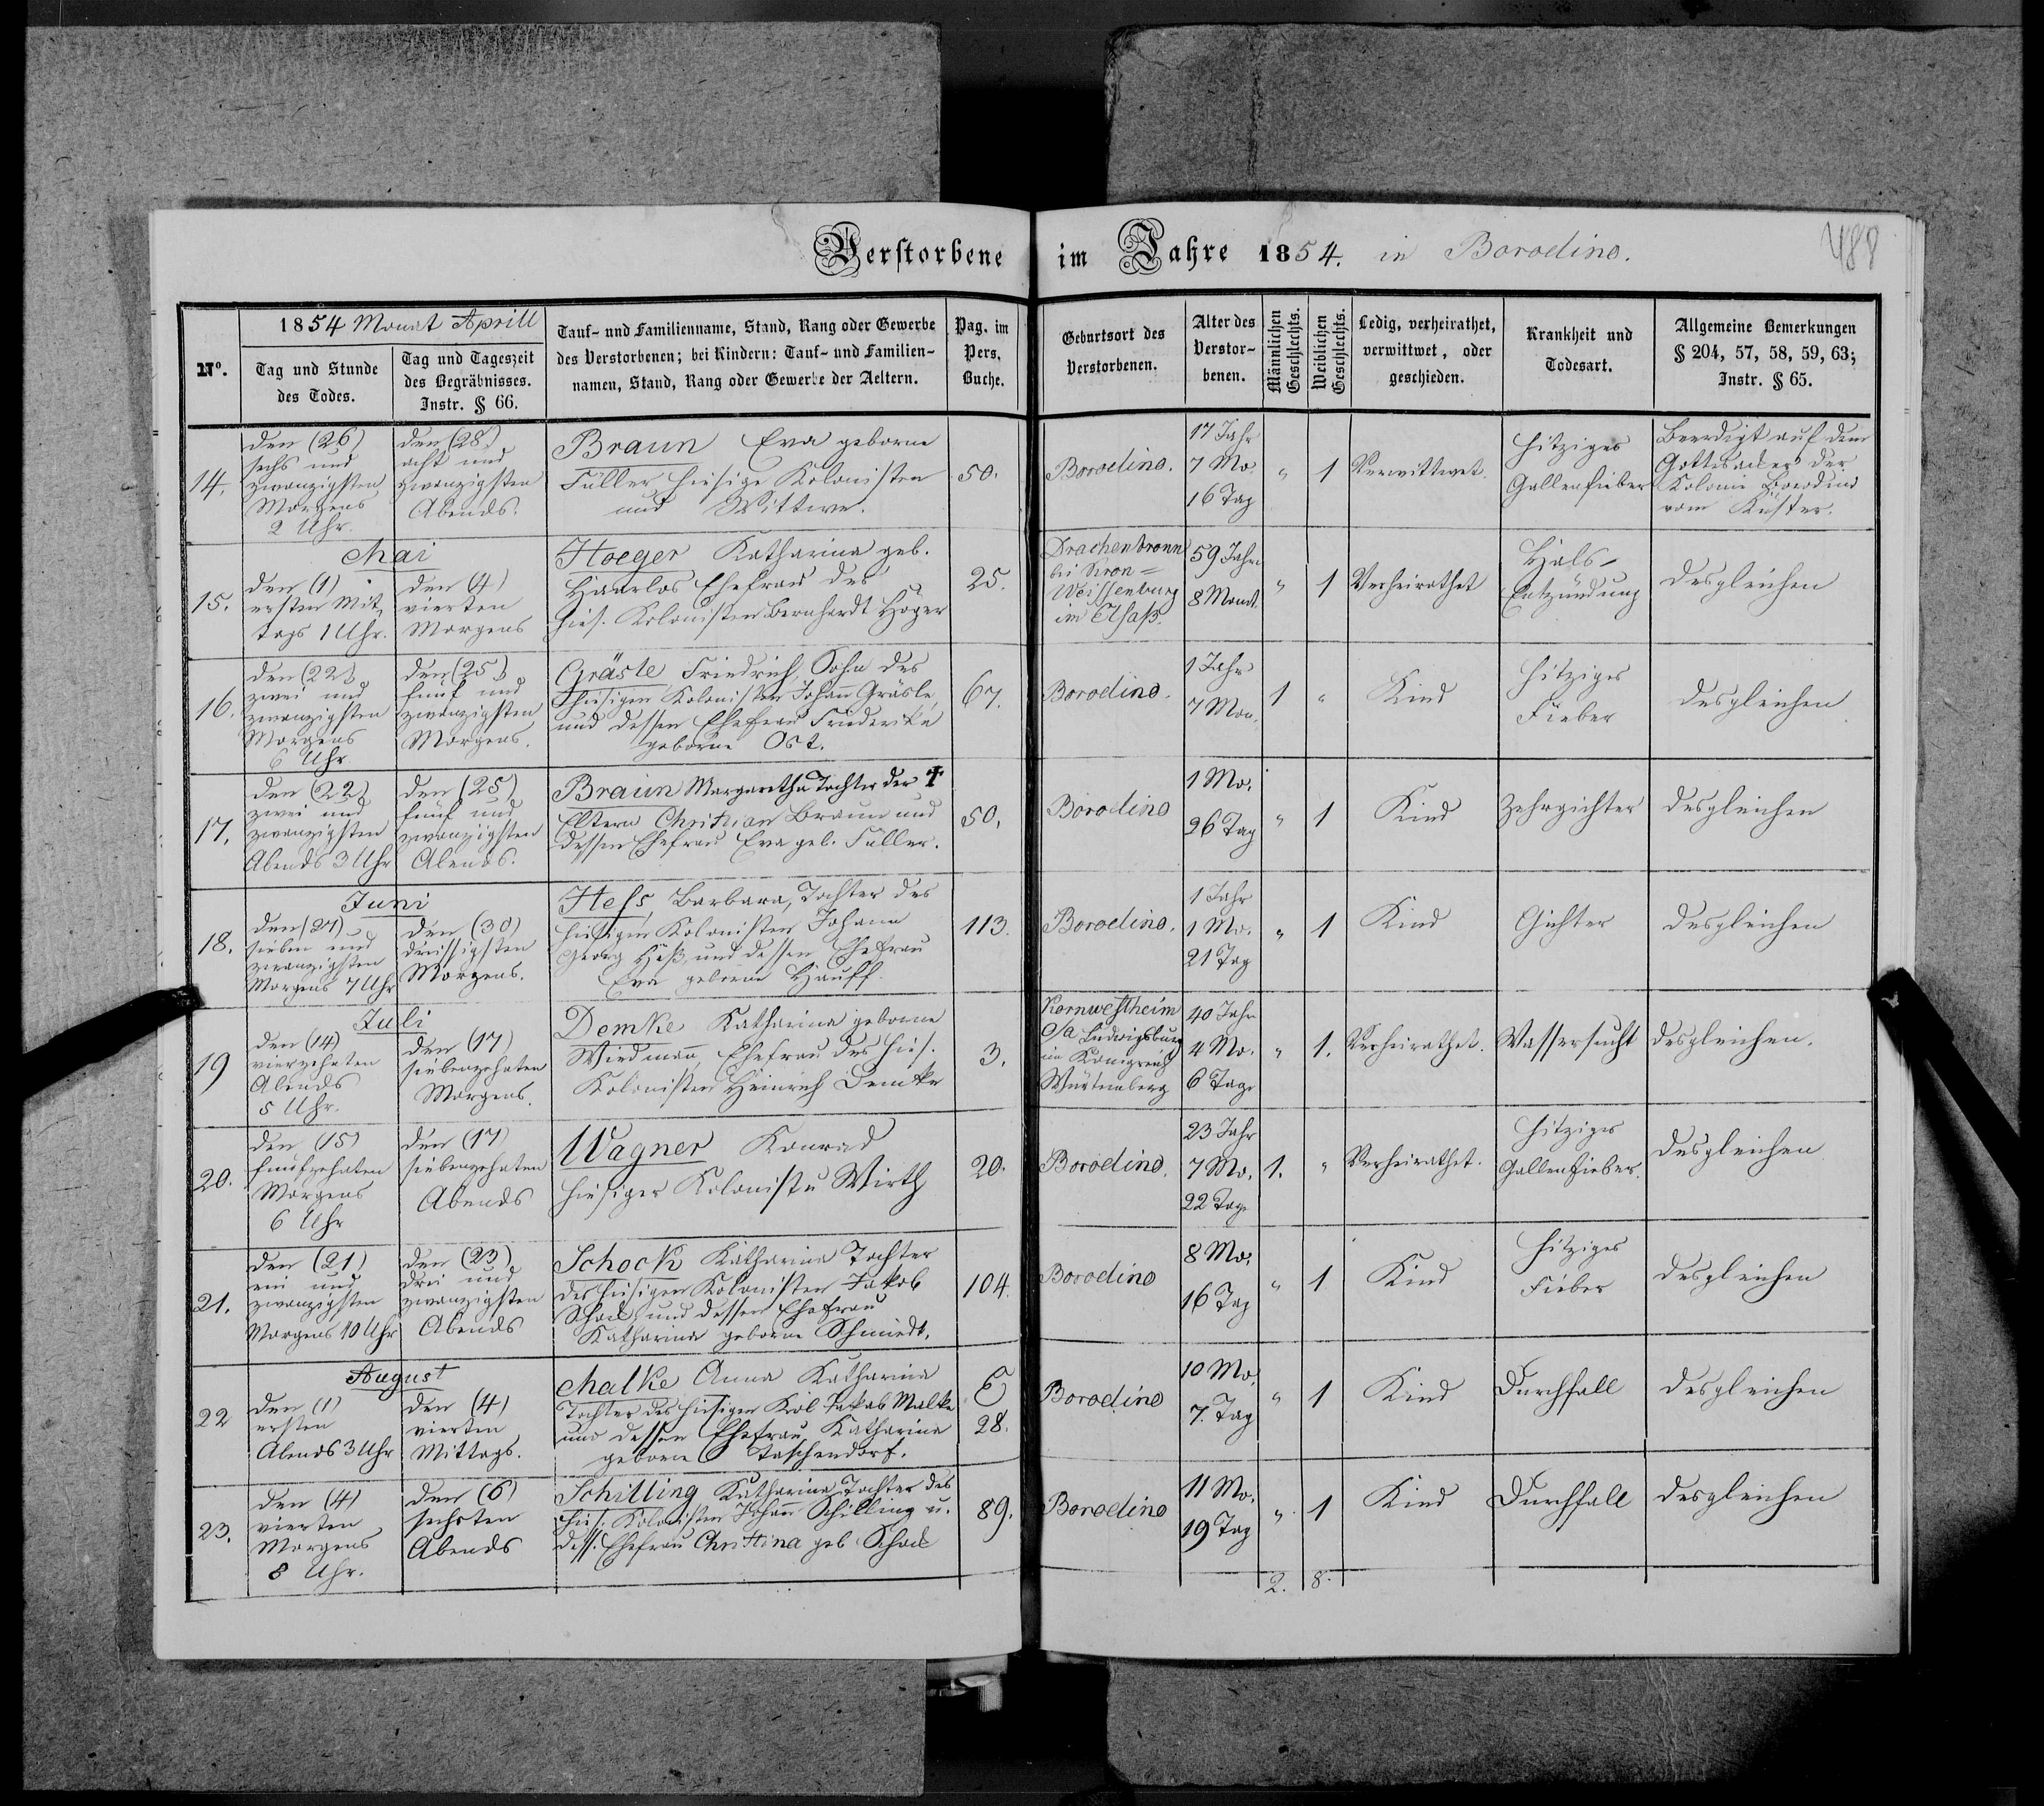 Verstorbene im Jahre 1854. in Borodino.
488
No.
1854 Monat Aprill
Tag und Stunde
des Todes.
Tag und Tageszeit
des Begräbnisses.
Instr. § 66.
Tauf- und Familienname, Stand, Rang oder Gewerbe
des Verstorbenen; bei Kindern: Tauf- und Familien-
namen, Stand, Rang oder Gewerbe der Aeltern.
Pag. im
Pers.
Buche.
Geburtsort des
Verstorbenen.
Alter des
Verstor-
benen.
Männlichen
Geschlechts.
Weiblichen
Geschlechts.
Ledig, verheirathet,
verwittwet, oder
geschieden.
Krankheit und
Todesart.
Allgemeine Bemerkungen
§ 204, 57, 58, 59, 63;
Instr. § 65.
14.
den (26)
sechs und
zwanzigsten
Morgens
2 Uhr.
den (28)
acht und
zwanzigsten
Abends.
Braun Eva geborne
Füller hiesige Kolonisten
und Wittwe.
50.
Borodino.
17 Jahr
7 Mo.
16 Tag
"
1
Verwittwet.
Hitziges
Gallenfieber
Beerdigt auf dem
Gottesacker der
Kolonie Borodino
vom Küster.
Mai
15.
den (1)
ersten Mit-
tags 1 Uhr.
den (4)
vierten
Morgens
Hoeger Katharina geb.
Haarlos Ehefrau des
hies. Kolonisten Bernhardt Höger
25.
Drachenbronn
bei Kron=
Weissenburg
im Elsaß.
59 Jahr
8 Monat.
"
1
Verheirathet
Hals-
Entzündung
desgleichen
16.
den (22)
zwei und
zwanzigsten
Morgens
6 Uhr.
den (25)
fünf und
zwanzigsten
Morgens.
Gräsle Friedrich, Sohn des
hiesigen Kolonisten Johan Gräsle
und dessen Ehefrau Friederika
geborne Ost.
67.
Borodino.
1 Jahr
7 Mon.
1
"
Kind
Hitziges
Fieber
desgleichen
17.
den (22)
zwei und
zwanzigsten
Abends 3 Uhr
den (25)
fünf und
zwanzigsten
Abends.
Braun Margaretha Tochter der †
Eltern Christian Braun und
dessen Ehefrau Eva geb. Füller.
50.
Borodino
1 Mo.
26 Tag
"
1
Kind
Zehrgichter
desgleichen
Juni
18.
den (27)
sieben und
zwanzigsten
Morgens 7 Uhr
den (30)
dreissigsten
Morgens.
Hess, Barbara, Tochter des
hiesigen Kolonisten Johann
Georg Heß, und dessen Ehefrau
Eva geborne Hauff.
113.
Borodino.
1 Jahr
1 Mo.
21 Tag
"
1
Kind
Gichter
desgleichen
Juli
19
den (14)
vierzehnten
Abends
5 Uhr.
den (17)
siebenzehnten
Morgens.
Demke Katharina geborne
Wiedmañ Ehefrau des hies.
Kolonisten Heinrich Demke
3.
Kornwestheim
O/A Ludwigsburg
im Königreich
Würtemberg
40 Jahr
4 Mo.
6 Tage
"
1.
Verheirathet.
Wassersucht
desgleichen.
20.
den (15)
fünfzehnten
Morgens
6 Uhr
den (17)
siebenzehnten
Abends
Wagner Konrad
hiesiger Kolonist u Wirth
20.
Borodino.
23 Jahr
7 Mo.
22 Tage
1.
"
Verheirathet.
Hitziges
Gallenfieber.
desgleichen
21.
den (21)
ein und
zwanzigsten
Morgens 10 Uhr
den (23)
drei und
zwanzigsten
Abends
Schock Katharina Tochter
des hiesigen Kolonisten Jakob
Schock und dessen Ehefrau
Katharina geborne Schmiedt.
104.
Borodino
8 Mo.
16 Tag
"
1
Kind
Hitziges
Fieber
desgleichen
August
22
den (1)
ersten
Abends 3 Uhr
den (4)
vierten
Mittags.
Malke Anna Katharina
Tochter des hiesigen Kol Jakob Malke
und dessen Ehefrau Katharina
geborne Taschendorf.
E
28.
Borodino
10 Mo.
7. Tag
"
1
Kind
Durchfall
desgleichen
23.
den (4)
vierten
Morgens
8 Uhr.
den (6)
sechsten
Abends
Schilling Katharina, Tochter des
hies. Kolonisten Johañ Schilling u.
dess. Ehefrau Christina geb. Schock
89.
Borodino
11 Mo.
19 Tag
"
1
Kind
Durchfall
desgleichen
2. 8.